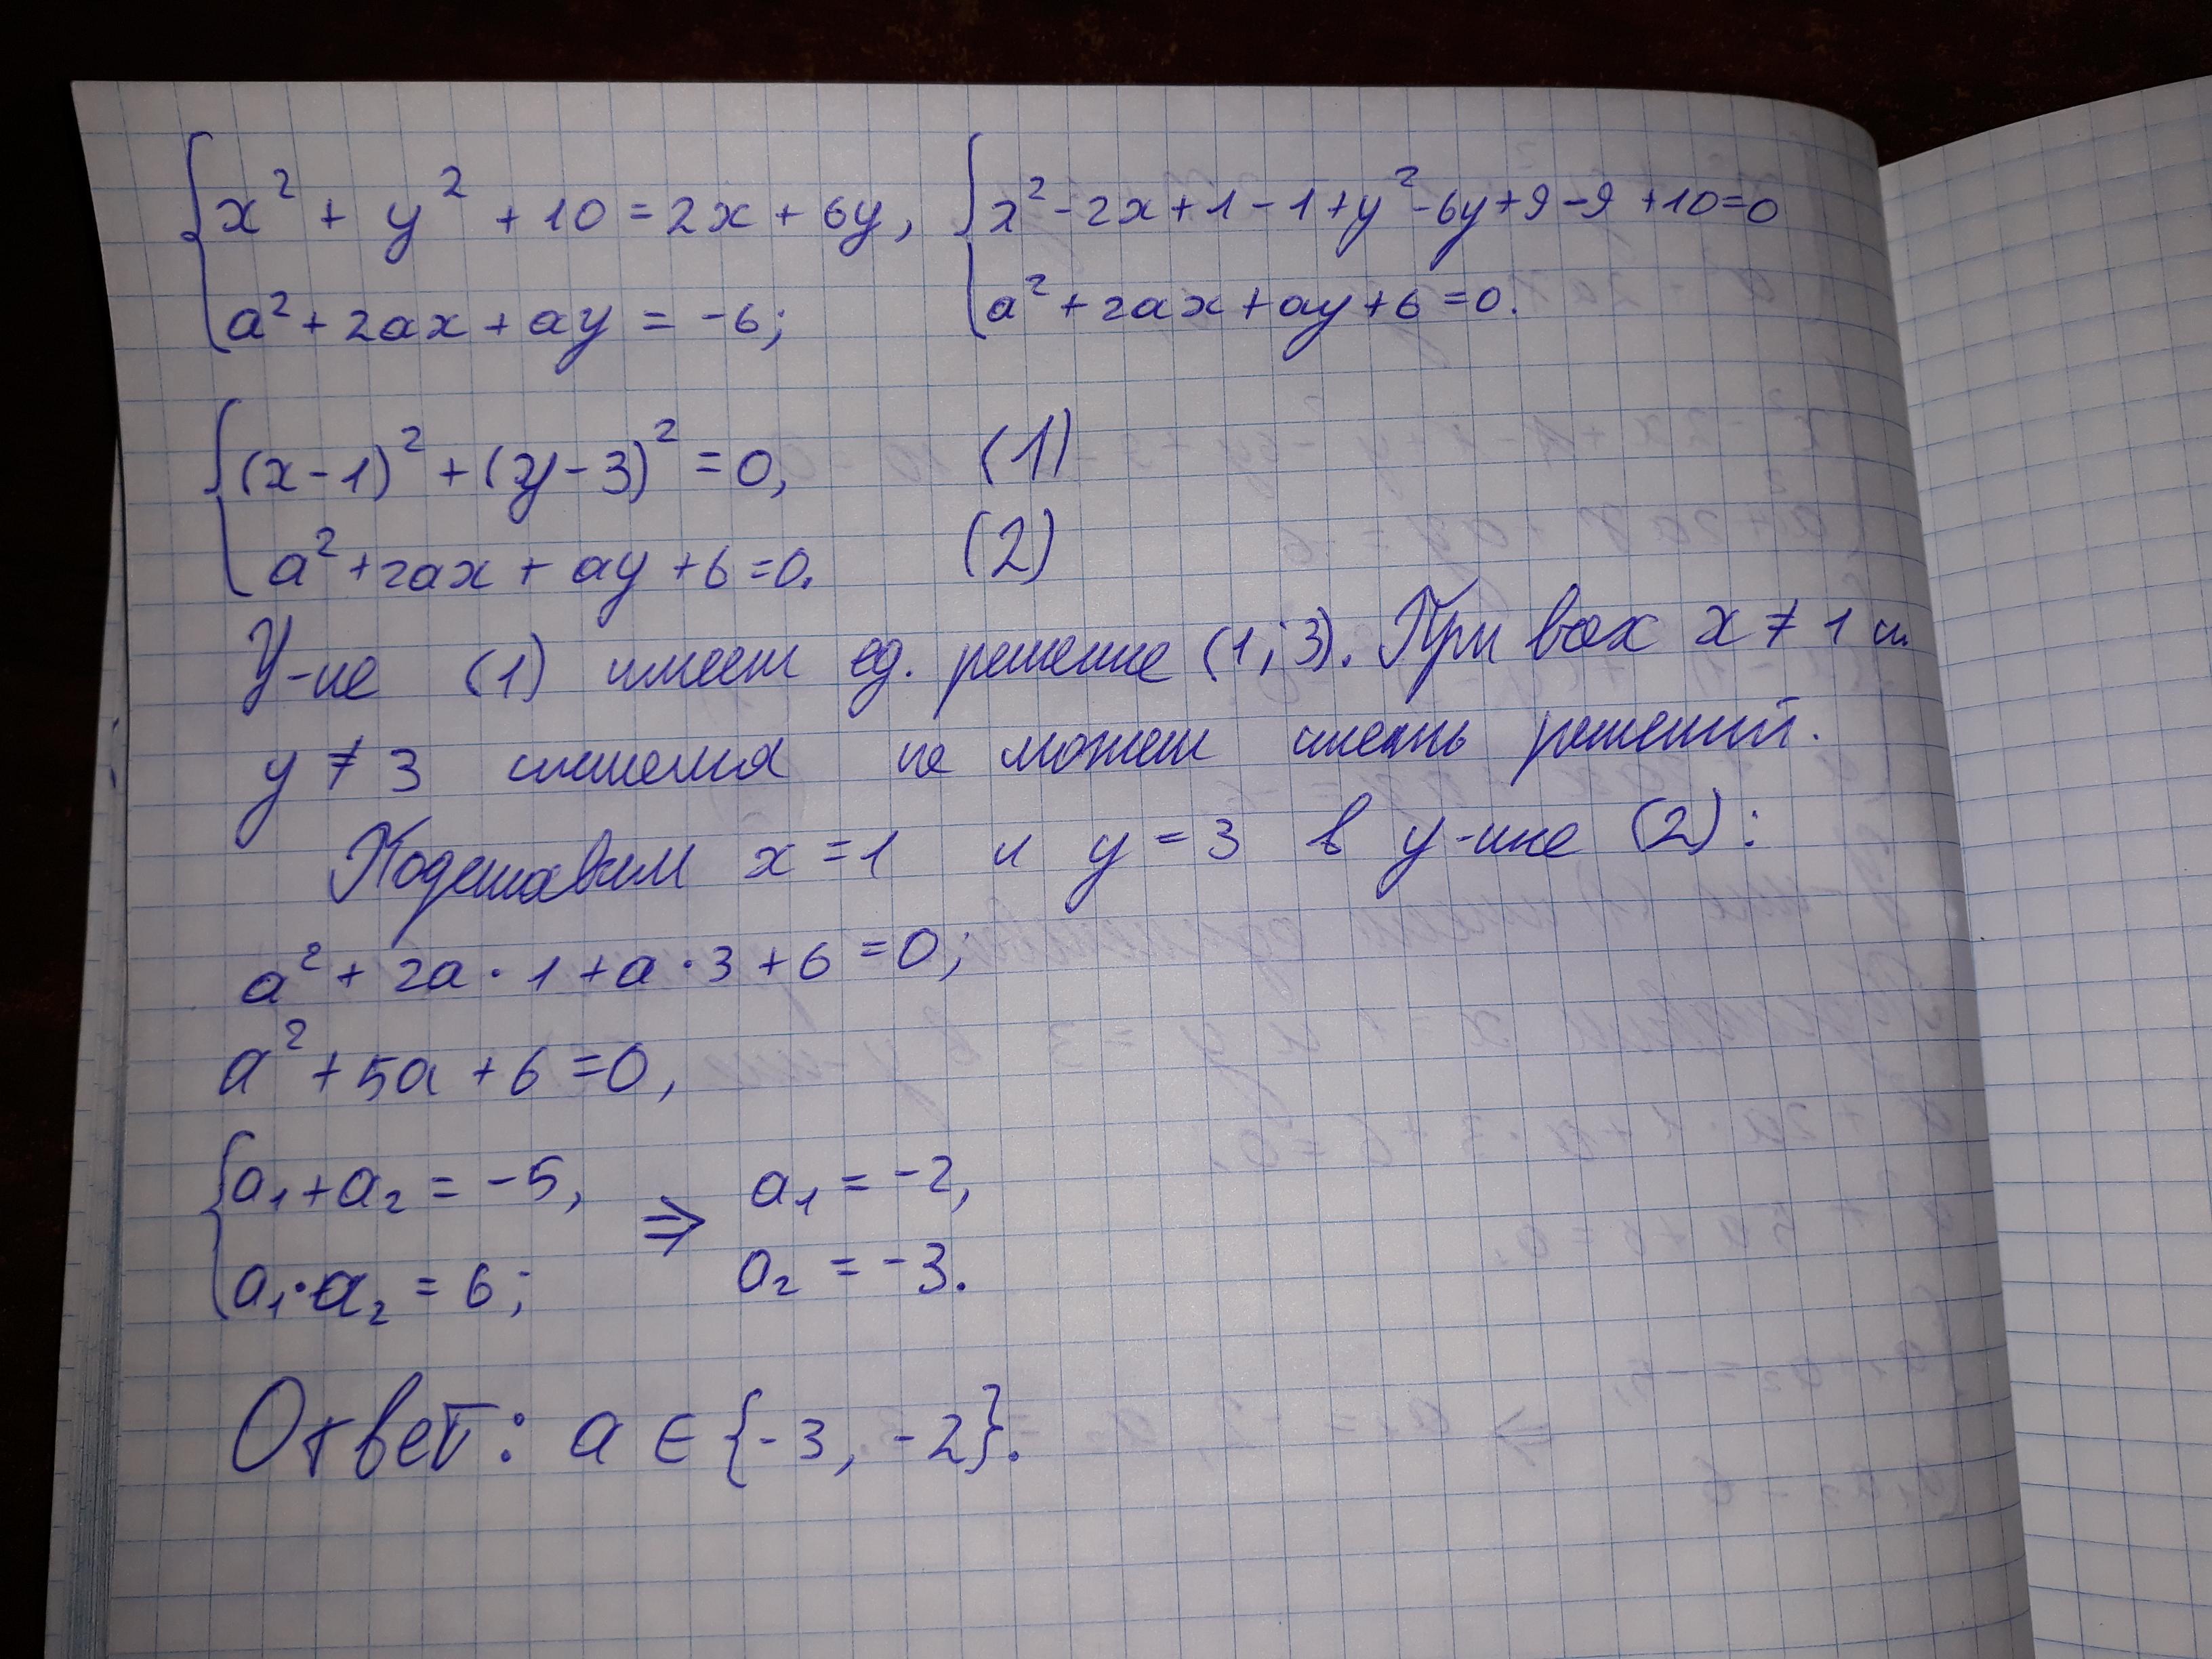 { x² + y² + 10 = 2x + 6y, { x² - 2x + 1 - 1 + y² - 6y + 9 - 9 + 10 = 0
a² + 2ax + ay = -6; a² + 2ax + ay + 6 = 0.
{ (x - 1)² + (y - 3)² = 0, (1)
a² + 2ax + ay + 6 = 0. (2)
У-ие (1) имеет ед. решение (1; 3). При всех x ≠ 1 и
y ≠ 3 система не может иметь решений.
Подставим x = 1 и y = 3 в у-ние (2):
a² + 2a · 1 + a · 3 + 6 = 0;
a² + 5a + 6 = 0,
{ a₁ + a₂ = -5, ⇒ a₁ = -2,
a₁ · a₂ = 6; a₂ = -3.
Ответ: a ∈ {-3, -2}.